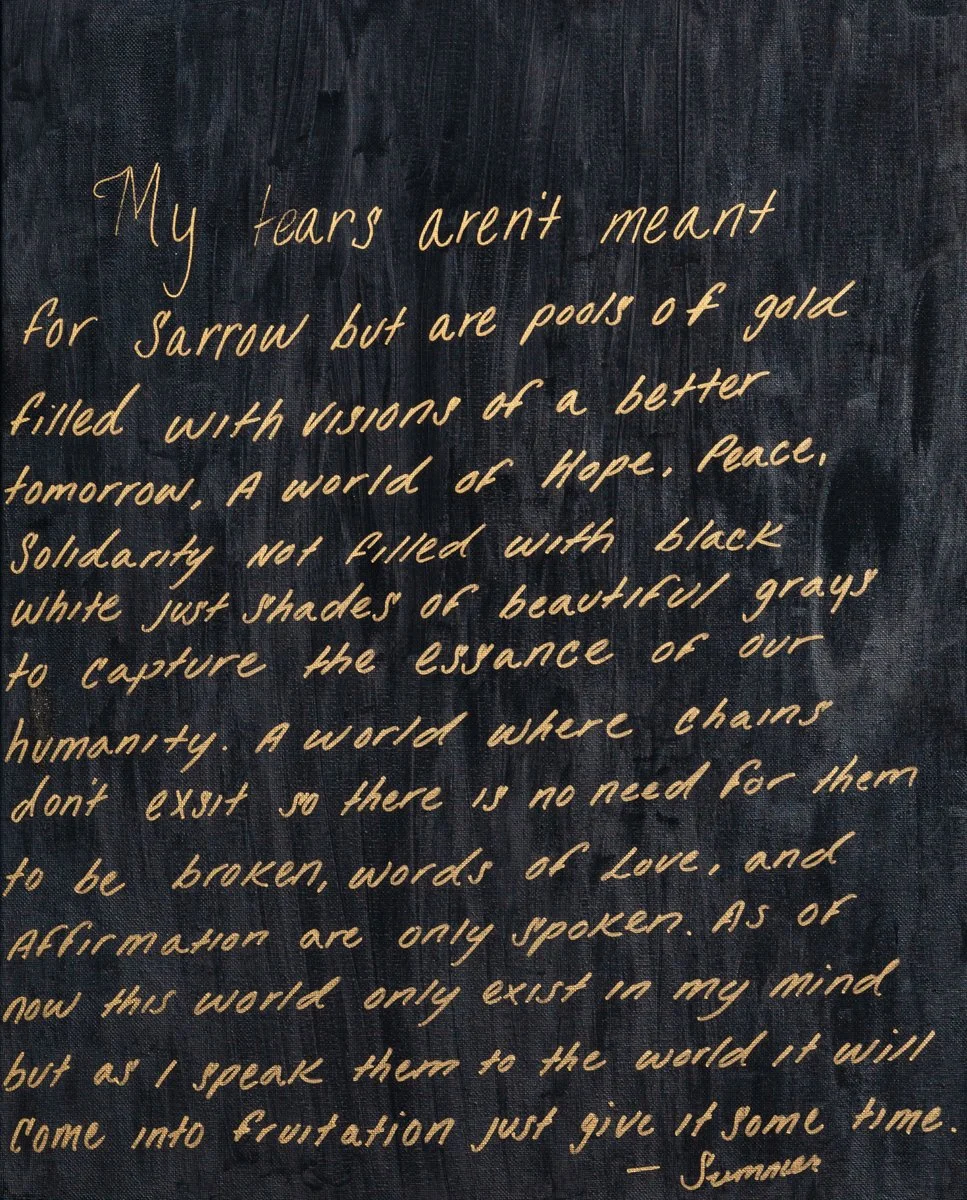 My tears aren't meant
for Sarrow but are pools of gold
filled with visions of a better
tomorrow, A world of Hope, Peace,
Solidarity Not filled with black
white just shades of beautiful grays
to capture the essance of our
humanity. A world where chains
don't exsit so there is no need for them
to be broken, words of Love, and
Affirmation are only spoken. As of
now this world only exist in my mind
but as I speak them to the world it will
Come into fruitation just give it some time.
— Summer